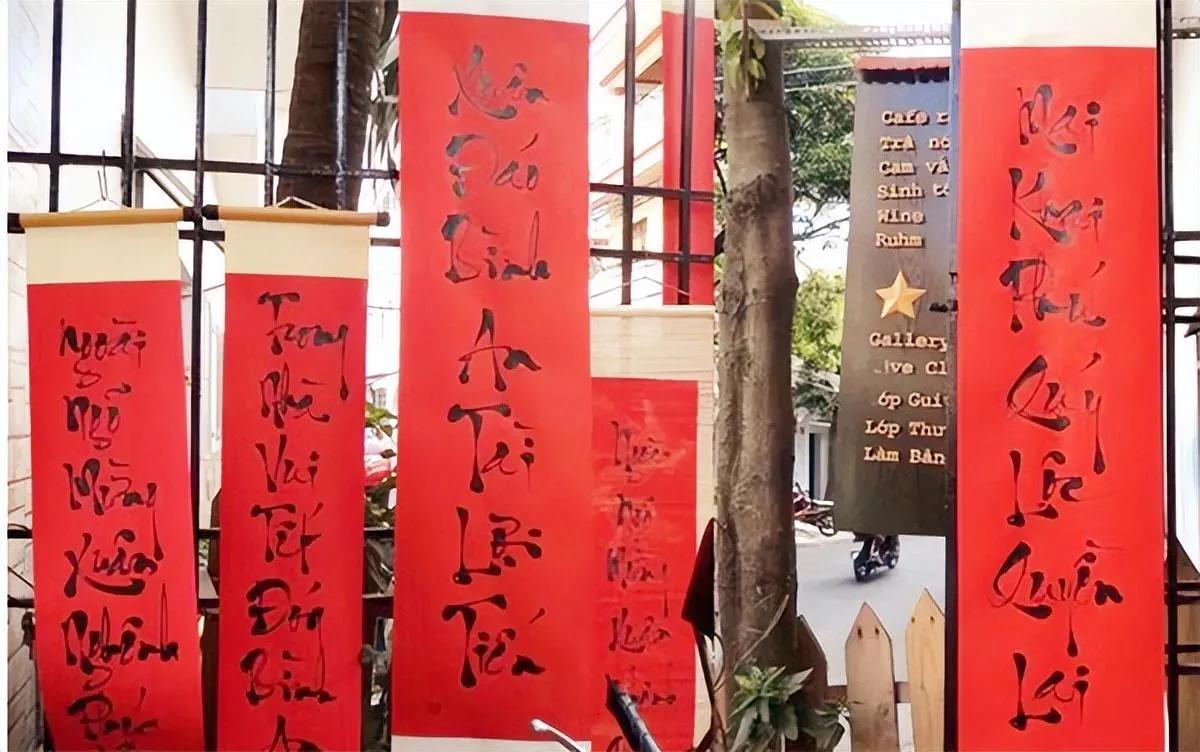 Ngoài
Ngõ
Mừng
Xuân
Nghênh
Trong
Nhà
Vui
Tết
Đón
Bình
Xuân
Đáo
Bình
An
Tài
Lợi
Tiến
Ngoài
Ngõ
Mừng
Xuân
Cafe
Trà
Sinh
Wine
Ruhm
Gallery
ive Cl
óp Gui
Lớp Thư
Làm
Mai
Khai
Phú
Quý
Lộc
Quyền
Lai